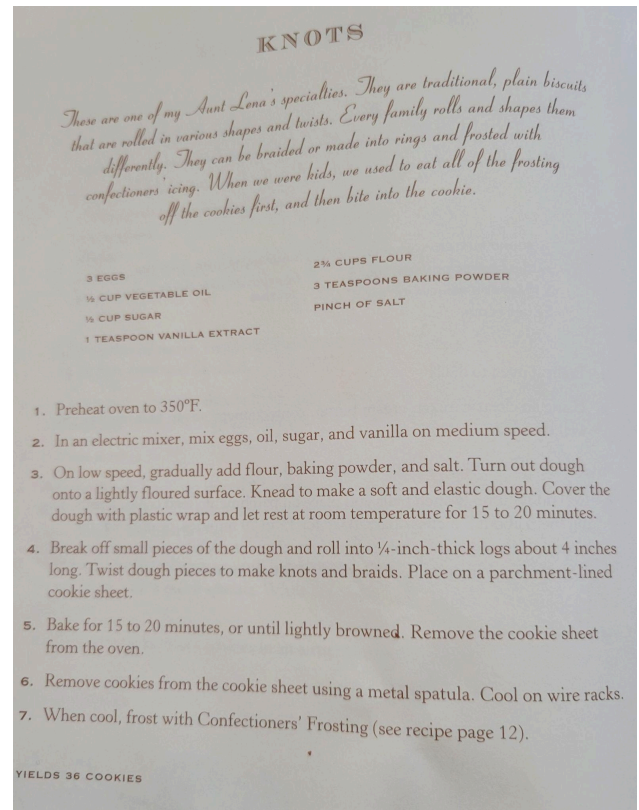 KNOTS
These are one of my Aunt Lena's specialties. They are traditional, plain biscuits
that are rolled in various shapes and twists. Every family rolls and shapes them
differently. They can be braided or made into rings and frosted with
confectioners' icing. When we were kids, we used to eat all of the frosting
off the cookies first, and then bite into the cookie.
3 EGGS
½ CUP VEGETABLE OIL
½ CUP SUGAR
1 TEASPOON VANILLA EXTRACT
2¾ CUPS FLOUR
3 TEASPOONS BAKING POWDER
PINCH OF SALT
1. Preheat oven to 350°F.
2. In an electric mixer, mix eggs, oil, sugar, and vanilla on medium speed.
3. On low speed, gradually add flour, baking powder, and salt. Turn out dough
onto a lightly floured surface. Knead to make a soft and elastic dough. Cover the
dough with plastic wrap and let rest at room temperature for 15 to 20 minutes.
4. Break off small pieces of the dough and roll into ¼-inch-thick logs about 4 inches
long. Twist dough pieces to make knots and braids. Place on a parchment-lined
cookie sheet.
5. Bake for 15 to 20 minutes, or until lightly browned. Remove the cookie sheet
from the oven.
6. Remove cookies from the cookie sheet using a metal spatula. Cool on wire racks.
7. When cool, frost with Confectioners' Frosting (see recipe page 12).
YIELDS 36 COOKIES